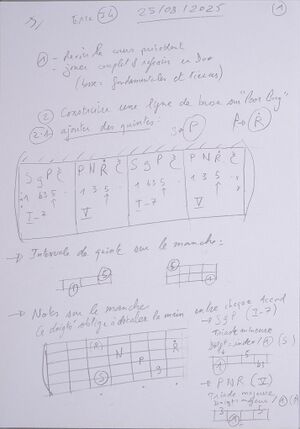 25/03/2025
①
① - Revoir le cours précédent
- jouer couplet & refrain en Duo
(basse: fondamentales et tierces)
② Construire une ligne de basse sur "
2.1 ajouter des quintes:
P
R
S g P
P N R
S g P
P N R
1 b3 5
1 3 5
1 b3 5
1 3 5
I-7
V
I-7
V
→ Intervalle de quinte sur le manche:
⑤
①
⑤
①
→ Notes sur le manche
Ce doigté oblige à décaler la main entre chaque accord
→ S g P (I-7)
Triade mineure
Doigt: index/
→ P N R (V)
Triade majeure
Doigt: majeur/
(R)
N
R
P
S
g